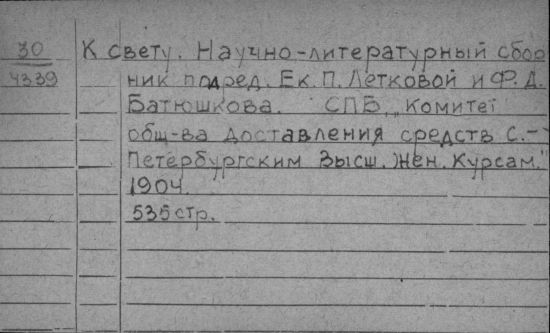 30 К свету. Научно-литературный сбор
4339 ник под ред. Ек. П. Летковой и Ф. Д.
Батюшкова. СПБ, „Комитет
общ-ва доставления средств С.-
Петербургским Высш. Жен. Курсам."
1904.
535 стр.